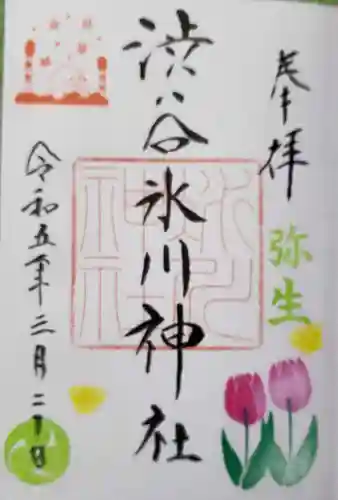 奉拝
弥生
渋谷氷川神社
令和五年三月二十日